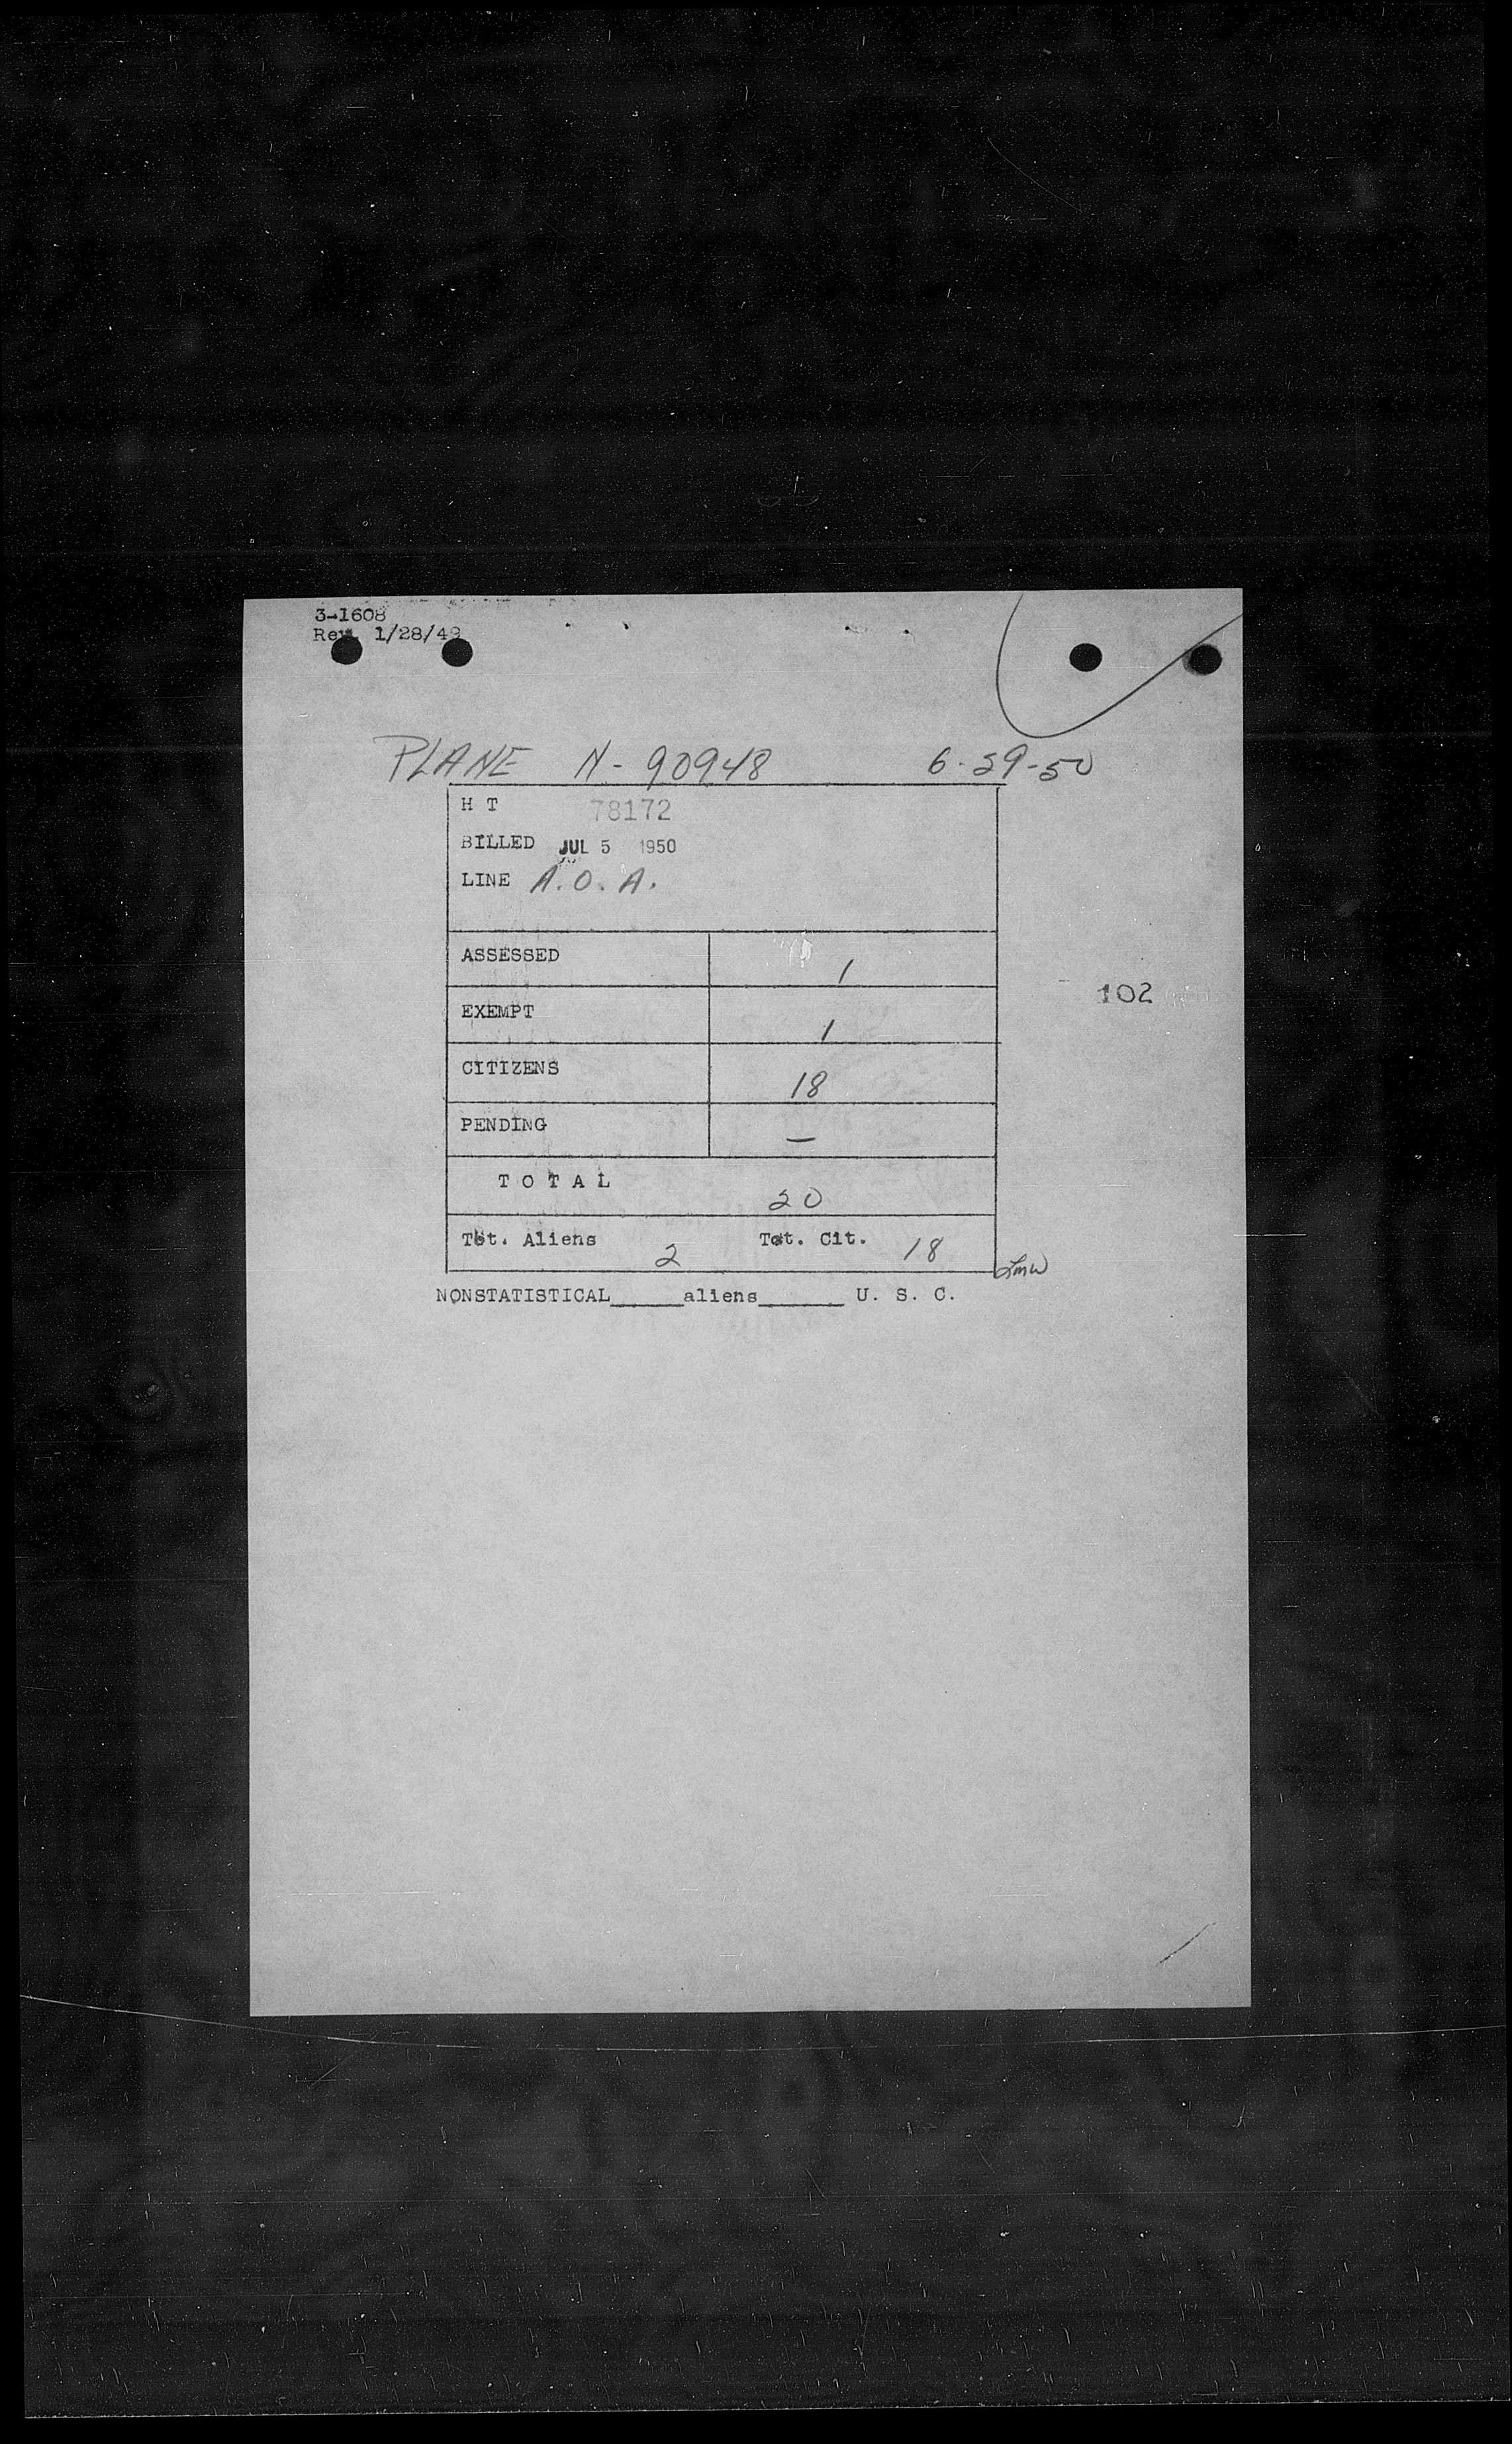 3-1608
Rev. 1/28/49
PLANE N-90948 6-29-50
H T 78172
BILLED JUL 5 1950
LINE A.O.A.
ASSESSED 1
EXEMPT 1
102
CITIZENS 18
PENDING —
T O T A L 20
Tot. Aliens 2 Tot. Cit. 18
NONSTATISTICAL_____aliens______ U. S. C.